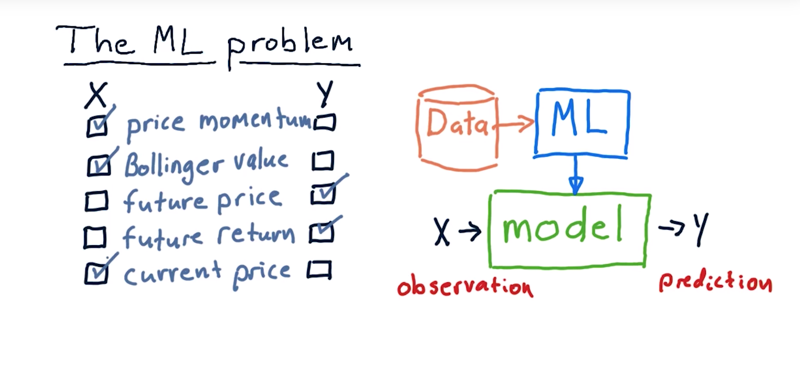 The ML problem
X Y
price momentum
Bollinger value
future price
future return
current price
Data ML
X model Y
observation prediction